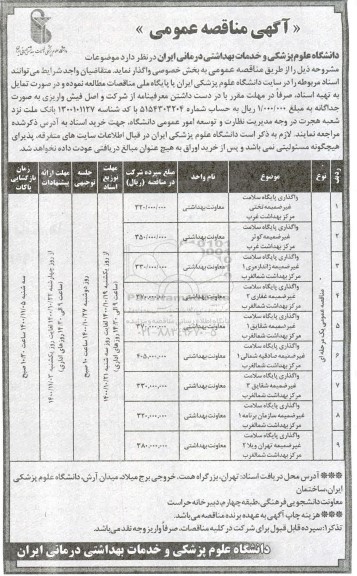 « آگهی مناقصه عمومی »
دانشگاه علوم پزشکی و خدمات بهداشتی درمانی ایران در نظر دارد موضوعات
مشروحه ذیل را از طریق مناقصه عمومی به بخش خصوصی واگذار نماید. متقاضیان واجد شرایط می توانند
اسناد مربوطه را در سایت دانشگاه علوم پزشکی ایران یا پایگاه ملی مناقصات مطالعه نموده و در صورت تمایل
به تهیه اسناد، صرفا در مهلت مقرر با در دست داشتن معرفینامه از شرکت و اصل فیش واریزی به صورت
جداگانه به مبلغ ۱/۰۰۰/۰۰۰ ریال به حساب شماره 5154303204 با کد شناسه 13001011127 بانک ملت نزد
شعبه هجرت در وجه مدیریت نظارت و توسعه امور عمومی دانشگاه، جهت خرید اسناد به آدرس ذکر شده
مراجعه نمایند. لازم به ذکر است دانشگاه علوم پزشکی ایران در قبال اطلاعات سایت های متفرقه، پذیرای
هیچگونه مسئولیتی نمی باشد و پس از خرید اوراق به هیچ عنوان مبالغ دریافتی عودت داده نخواهد شد.
ردیف نوع موضوع نام واحد مبلغ سپرده شرکت در مناقصه (ریال) مهلت توزیع اسناد جلسه توجیهی مهلت ارائه پیشنهادات زمان بازگشایی پاکات
مناقصه عمومی یک مرحله ای
۱ واگذاری پایگاه سلامت غیر ضمیمه تختی مرکز بهداشت غرب معاونت بهداشتی ۳۲۰/۰۰۰/۰۰۰
۲ واگذاری پایگاه سلامت غیر ضمیمه کوثر مرکز بهداشت غرب معاونت بهداشتی ۳۵۰/۰۰۰/۰۰۰
۳ واگذاری پایگاه سلامت غیر ضمیمه ژاندارمری ۱ مرکز بهداشت شمالغرب معاونت بهداشتی ۳۳۰/۰۰۰/۰۰۰
۴ واگذاری پایگاه سلامت غیر ضمیمه غفاری ۲ مرکز بهداشت شمالغرب معاونت بهداشتی
۵ واگذاری پایگاه سلامت غیر ضمیمه شقایق ۱ مرکز بهداشت شمالغرب معاونت بهداشتی
۶ واگذاری پایگاه سلامت غیر ضمیمه صادقیه شمالی ۱ مرکز بهداشت شمالغرب معاونت بهداشتی ۴۰۵/۰۰۰/۰۰۰
۷ واگذاری پایگاه سلامت غیر ضمیمه شقایق ۲ مرکز بهداشت شمالغرب معاونت بهداشتی ۳۳۰/۰۰۰/۰۰۰
۸ واگذاری پایگاه سلامت غیر ضمیمه سازمان برنامه ۱ مرکز بهداشت شمالغرب معاونت بهداشتی ۳۲۰/۰۰۰/۰۰۰
۹ واگذاری پایگاه سلامت غیر ضمیمه تهران ویلا ۲ مرکز بهداشت شمالغرب معاونت بهداشتی ۳۸۰/۰۰۰/۰۰۰
از روز یکشنبه ۱۴۰۰/۱۰/۱۹ لغایت روز سه شنبه ۱۴۰۰/۱۰/۲۱ (ساعت ۹ الی ۱۴:۳۰ روزهای اداری)
روز دوشنبه ۱۴۰۰/۱۰/۲۷ ساعت ۱۰ صبح
از روز چهارشنبه ۱۴۰۰/۱۰/۲۲ لغایت روز یکشنبه ۱۴۰۰/۱۱/۰۳ (ساعت ۹ الی ۱۴:۳۰ روزهای اداری)
سه شنبه ۱۴۰۰/۱۱/۰۵ ساعت ۱۰:۳۰ صبح
※※※ آدرس محل دریافت اسناد: تهران، بزرگراه همت، خروجی برج میلاد، میدان آرش، دانشگاه علوم پزشکی
ایران، ساختمان
معاونت دانشجویی فرهنگی، طبقه چهارم، دبیرخانه حراست
※※※ هزینه چاپ آگهی به عهده برنده مناقصه می باشد.
تذکر ۱: سپرده قابل قبول برای شرکت در کلیه مناقصات، صرفا واریز وجه نقد می باشد.
دانشگاه علوم پزشکی و خدمات بهداشتی درمانی ایران